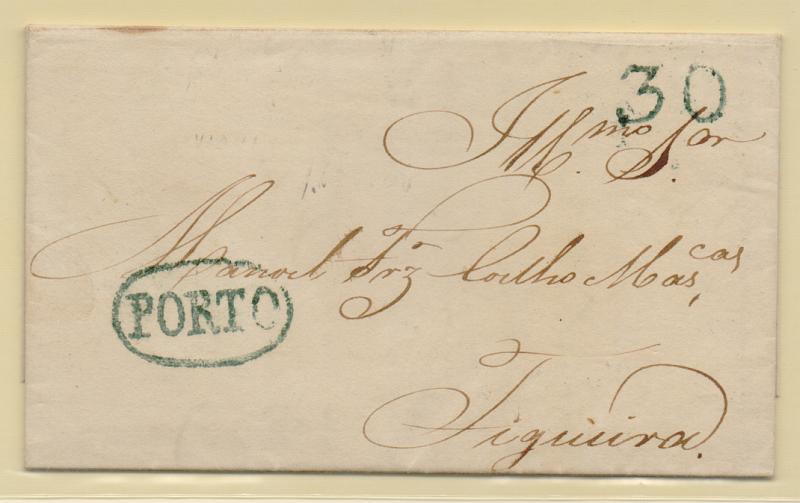 30
Ill.mo Sn̄r
Manoel Frz Coelho Mas.cas
PORTO
Figueira.